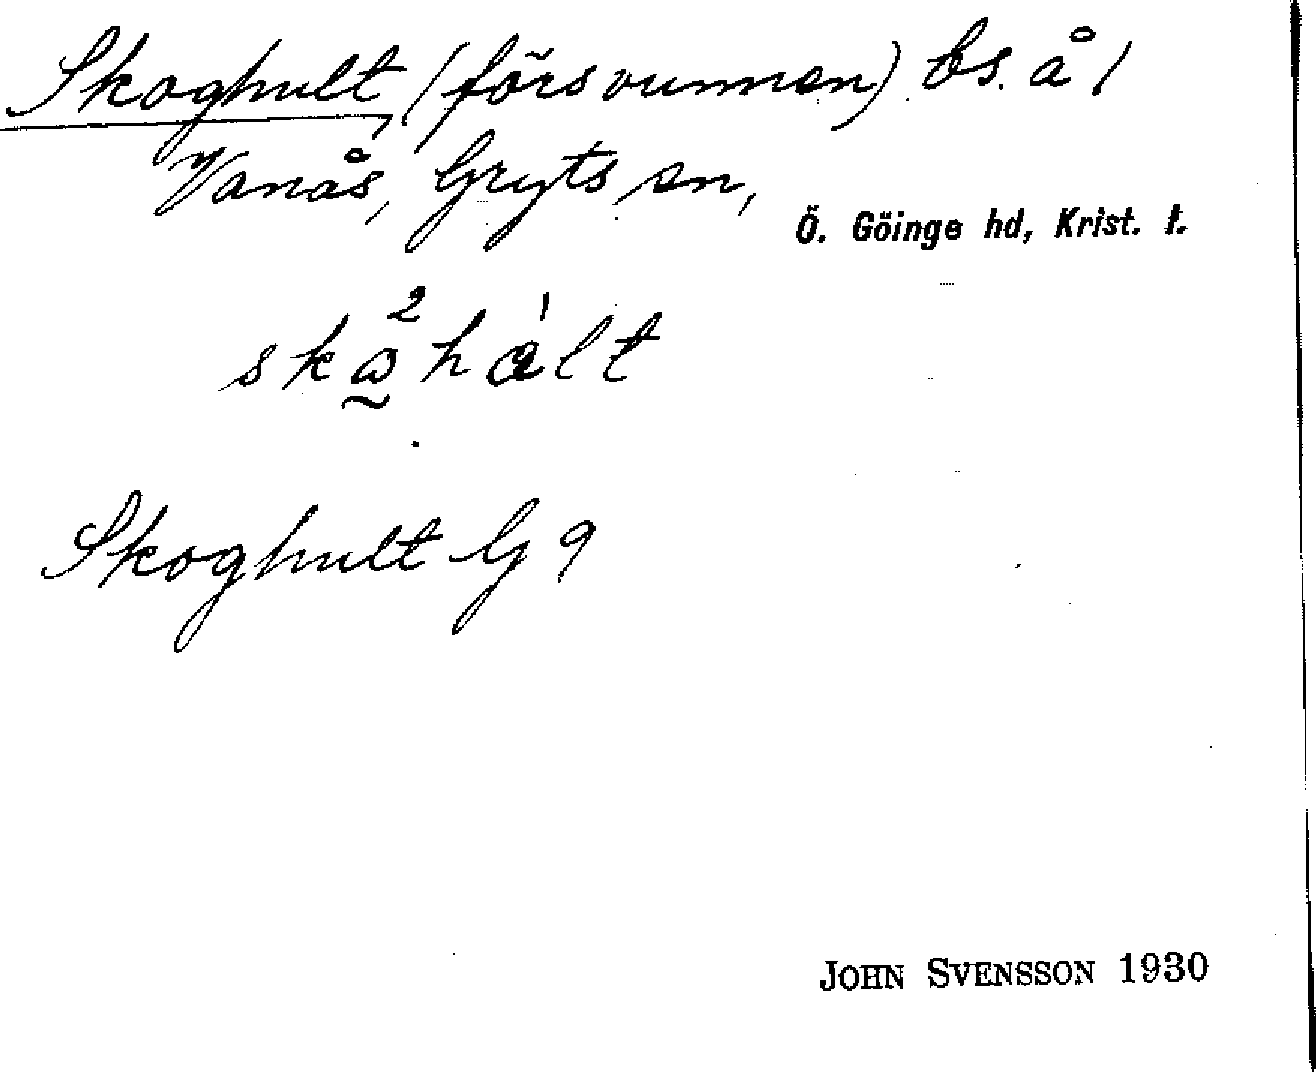 Skoghult, (försvunnen) bs. å /
Vanås, Gryts sn,
Ö. Göinge hd, Krist. l.
Skoghult G 9
JOHN SVENSSON 1930